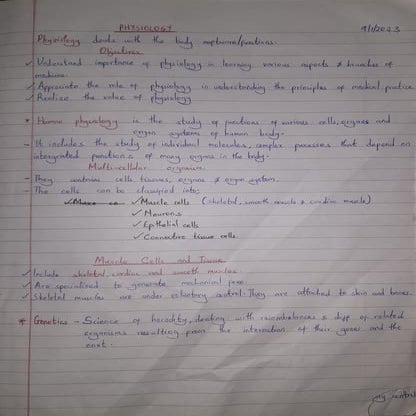 PHYSIOLOGY 9/1/2023
Physiology deals with the body
Objectives
✓ Understand importance of physiology in learning various aspects & branches of
medicine.
✓ Appreciate the role of physiology in understanding the principles of medical practice
✓ Realize the value of physiology
* Human physiology is the study of functions of various cells, organs and
organ systems of human body.
- It includes the study of individual molecules, complex processes that depend on
intergrated functions of many organs in the body.
Multicellular organism
- They contain cells, tissues, organs & organ system.
- The cells can be classified into:
✓ Muscle cells (skeletal, smooth muscle & cardiac muscle)
✓ Neurons
✓ Epithelial cells
✓ Connective tissue cells
Muscle Cells and Tissue
✓ Include skeletal, cardiac and smooth muscles
✓ Are specialised to generate mechanical force
✓ Skeletal muscles are under voluntary control. They are attached to skin and bones.
* Genetics - Science of heredity, dealing with resemblances & diff of related
organisms resulting from the interaction of their genes and the